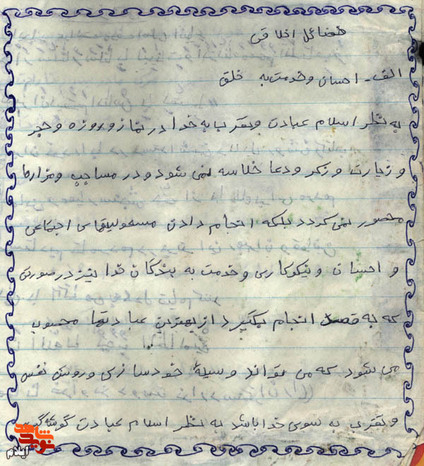 فضائل اخلاقی
الف - احسان و خدمت به خلق
به نظر اسلام عبادت و تقرب به خدا در نماز و روزه و حج
و زیارت و ذکر و دعا خلاسه نمی شود و در مساجد و مزارها
محصور نمی گردد بلکه انجام دادن مسئولیتهای اجتماعی
و احسان و نیکوکاری و خدمت به بندگان خدا نیز در صورتی
که به قصد انجام بگیرد از بهترین عبادتها محسوب
می شود که می تواند وسیله خودسازی و پرورش نفس
و تقرب به سوی خدا باشد به نظر اسلام عبادت گوشه گیر
نوید شاهد
ایلام